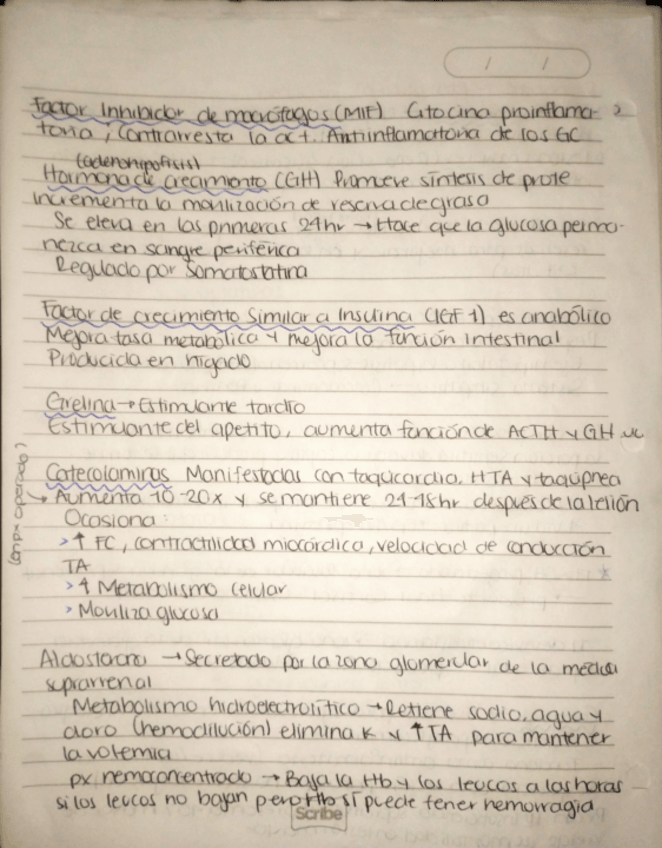 / /
Factor Inhibidor de macrófagos (MIF) Citocina proinflama- 2
toria, Contrarresta la act. Antiinflamatoria de los GC
(adenohipofisis)
Hormona de crecimiento (GH) Promueve síntesis de prote
incrementa la movilización de reserva de grasa
Se eleva en las primeras 24hr → Hace que la glucosa perma-
nezca en sangre periférica
Regulado por Somatostatina
Factor de crecimiento Similar a Insulina (IGF 1) es anabólico
Mejora tasa metabólica y mejora la función intestinal
Producida en hígado
Grelina → Estimulante tardío
Estimulante del apetito, aumenta función de ACTH y GH
Catecolaminas Manifestadas con taquicardia, HTA y taquipnea
(en px operado)
→ Aumenta 10-20x y se mantiene 24-48hr después de la lesión
Ocasiona:
> ↑ FC, contractilidad miocárdica, velocidad de conducción
TA
> ↑ Metabolismo celular
> Moviliza glucosa
Aldosterona → Secretada por la zona glomerular de la médula
suprarrenal
Metabolismo hidroelectrolítico → Retiene sodio, agua y
cloro (hemodilución) elimina K y ↑TA para mantener
la volemia
px hemoconcentrado → Baja la Hb y los leucos a las horas
si los leucos no bajan pero Hb sí puede tener hemorragia
Scribe